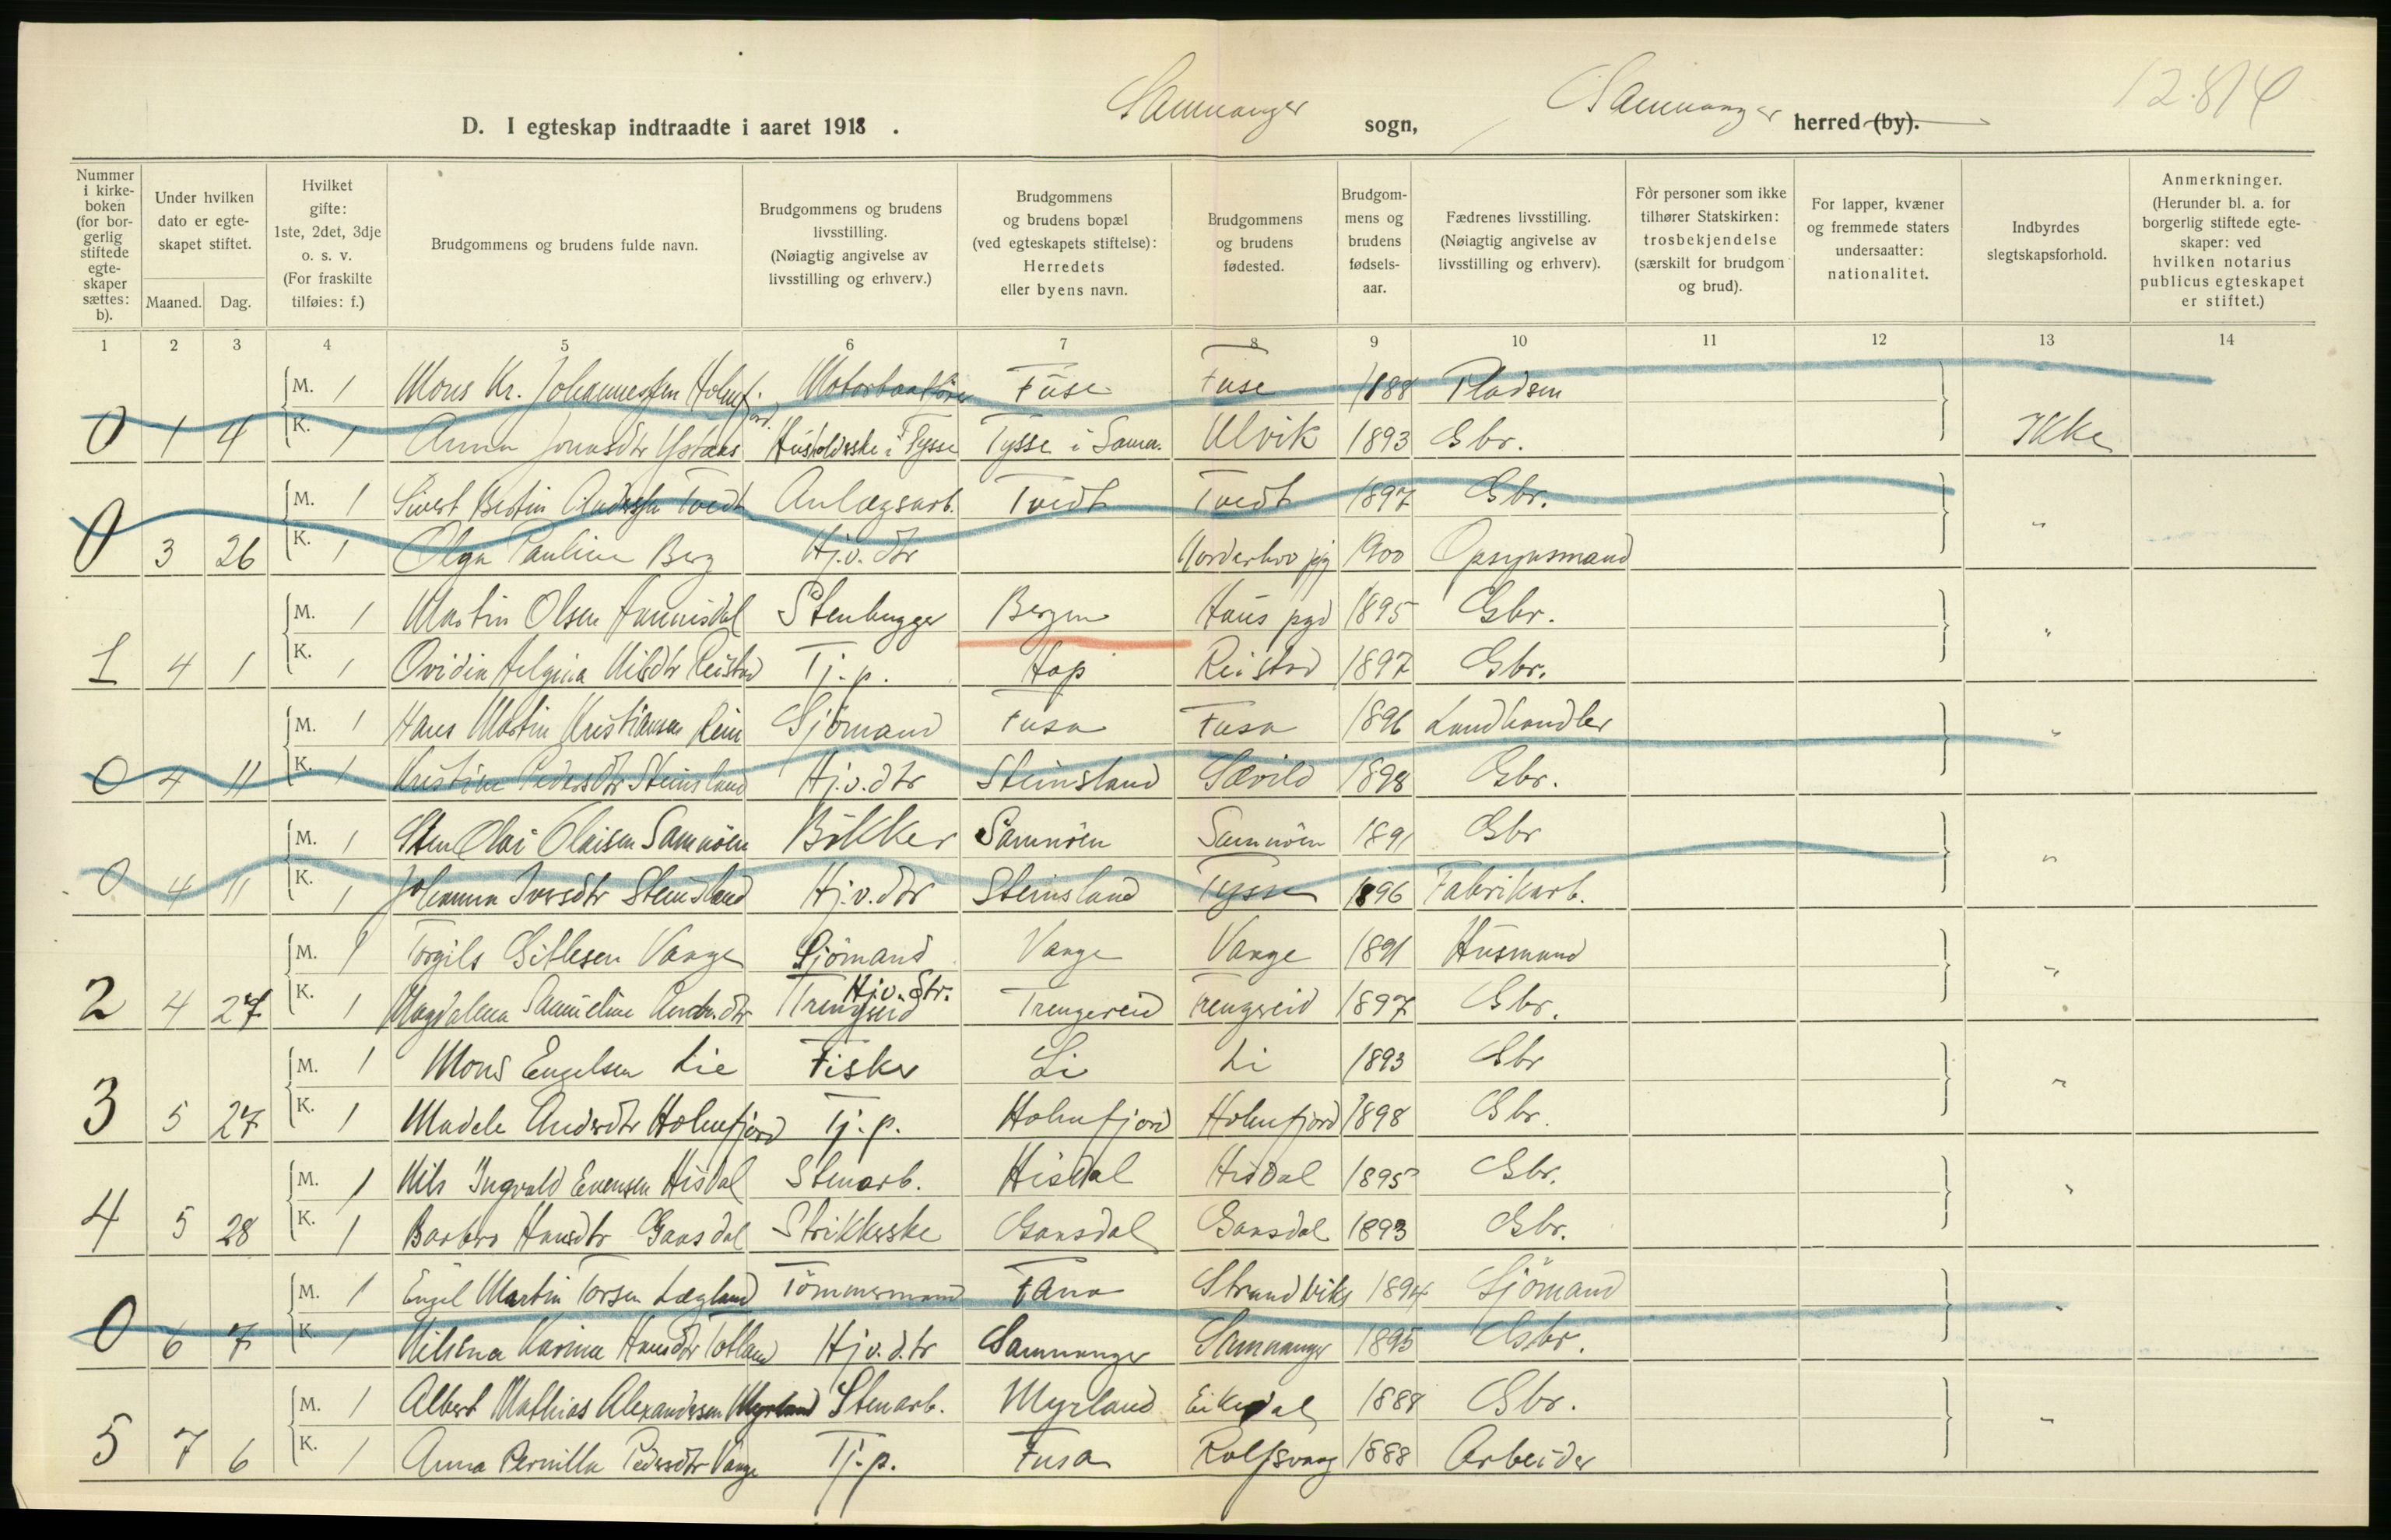 12.814
D. I egteskap indtraadte i aaret 1918 . Samnanger sogn, Samnanger herred (by).
Nummer i kirkeboken (for borgerlig stiftede egteskaper sættes: b).
Under hvilken dato er egteskapet stiftet.
Maaned. Dag.
Hvilket gifte: 1ste, 2det, 3dje o. s. v. (For fraskilte tilføies: f.)
Brudgommens og brudens fulde navn.
Brudgommens og brudens livsstilling. (Nøiagtig angivelse av livsstilling og erhverv.)
Brudgommens og brudens bopæl (ved egteskapets stiftelse): Herredets eller byens navn.
Brudgommens og brudens fødested.
Brudgommens og brudens fødselsaar.
Fædrenes livsstilling. (Nøiagtig angivelse av livsstilling og erhverv).
For personer som ikke tilhører Statskirken: trosbekjendelse (særskilt for brudgom og brud).
For lapper, kvæner og fremmede staters undersaatter: nationalitet.
Indbyrdes slegtskapsforhold.
Anmerkninger. (Herunder bl. a. for borgerlig stiftede egteskaper: ved hvilken notarius publicus egteskapet er stiftet.)
1 2 3 4 5 6 7 8 9 10 11 12 13 14
M. 1 Mons Kr. Johannessen Holmfjord. Motorbaatfører Fuse Fuse 1888 Pladsm
0 1 4 K. 1 Anna Jonasdtr Husholderske i Tysse Tysse i Samn. Ulvik 1893 Gbr. Ikke
M. 1 Sivert Bertin Andersen Tvedt Anlægsarb. Tvedt Tvedt 1897 Gbr.
0 3 26 K. 1 Olga Pauline Berg Hj.v. dtr Norderhov pgj 1900 Opsynsmand "
M. 1 Martin Olsen Hannisdal Stenhugger Bergen Haus pgd 1895 Gbr.
1 4 1 K. 1 Ovidia Helgina Nilsdtr Reistad Tj.p. Hop Reistad 1897 Gbr. "
M. 1 Hans Martin Kristiansen Leim Sjömand Fusa Fusa 1896 Landhandler
0 4 11 K. 1 Kristine Pedersdtr Steinsland Hj.v.dtr Steinsland Sævild 1898 Gbr. "
M. 1 Sten Olai Olaisen Samnöen Bökker Samnöen Samnöen 1891 Gbr
0 4 11 K. 1 Johanna Iversdtr Steinsland Hj.v.dtr Steinsland Tysse 1896 Fabrikarb. "
M. 1 Torgils Gitlesen Vange Sjömand Vange Vange 1891 Husmand
2 4 27 K. 1 Magdalena Samueline Andr.dtr Trengereid Hj.v.dtr. Trengereid Trengereid 1897 Gbr. "
M. 1 Mons Engelsen Lie Fisker Li Li 1893 Gbr
3 5 27 K. 1 Madele Andersdtr Holmfjord Tj.p. Holmfjord Holmfjord 1898 Gbr. "
M. 1 Nils Ingvald Evensen Hisdal Stenarb. Hisdal Hisdal 1895 Gbr.
4 5 28 K. 1 Barbro Hansdtr Gaasdal Strikkerske Gaasdal Gaasdal 1893 Gbr. "
M. 1 Engel Martin Torsen Lægland Tömmermand Fana Strandvik 1894 Sjömand
0 6 7 K. 1 Nilsina Karina Hansdtr Totland Hj v. dtr Samnanger Samnanger 1895 Gbr. "
M. 1 Albert Mathias Alexandersen Myrland Stenarb. Myrland Eikedal 1888 Gbr.
5 7 6 K. 1 Anna Pernilla Pedersdtr Vange Tj.p. Fusa Rolfsvaag 1888 Arbeider "